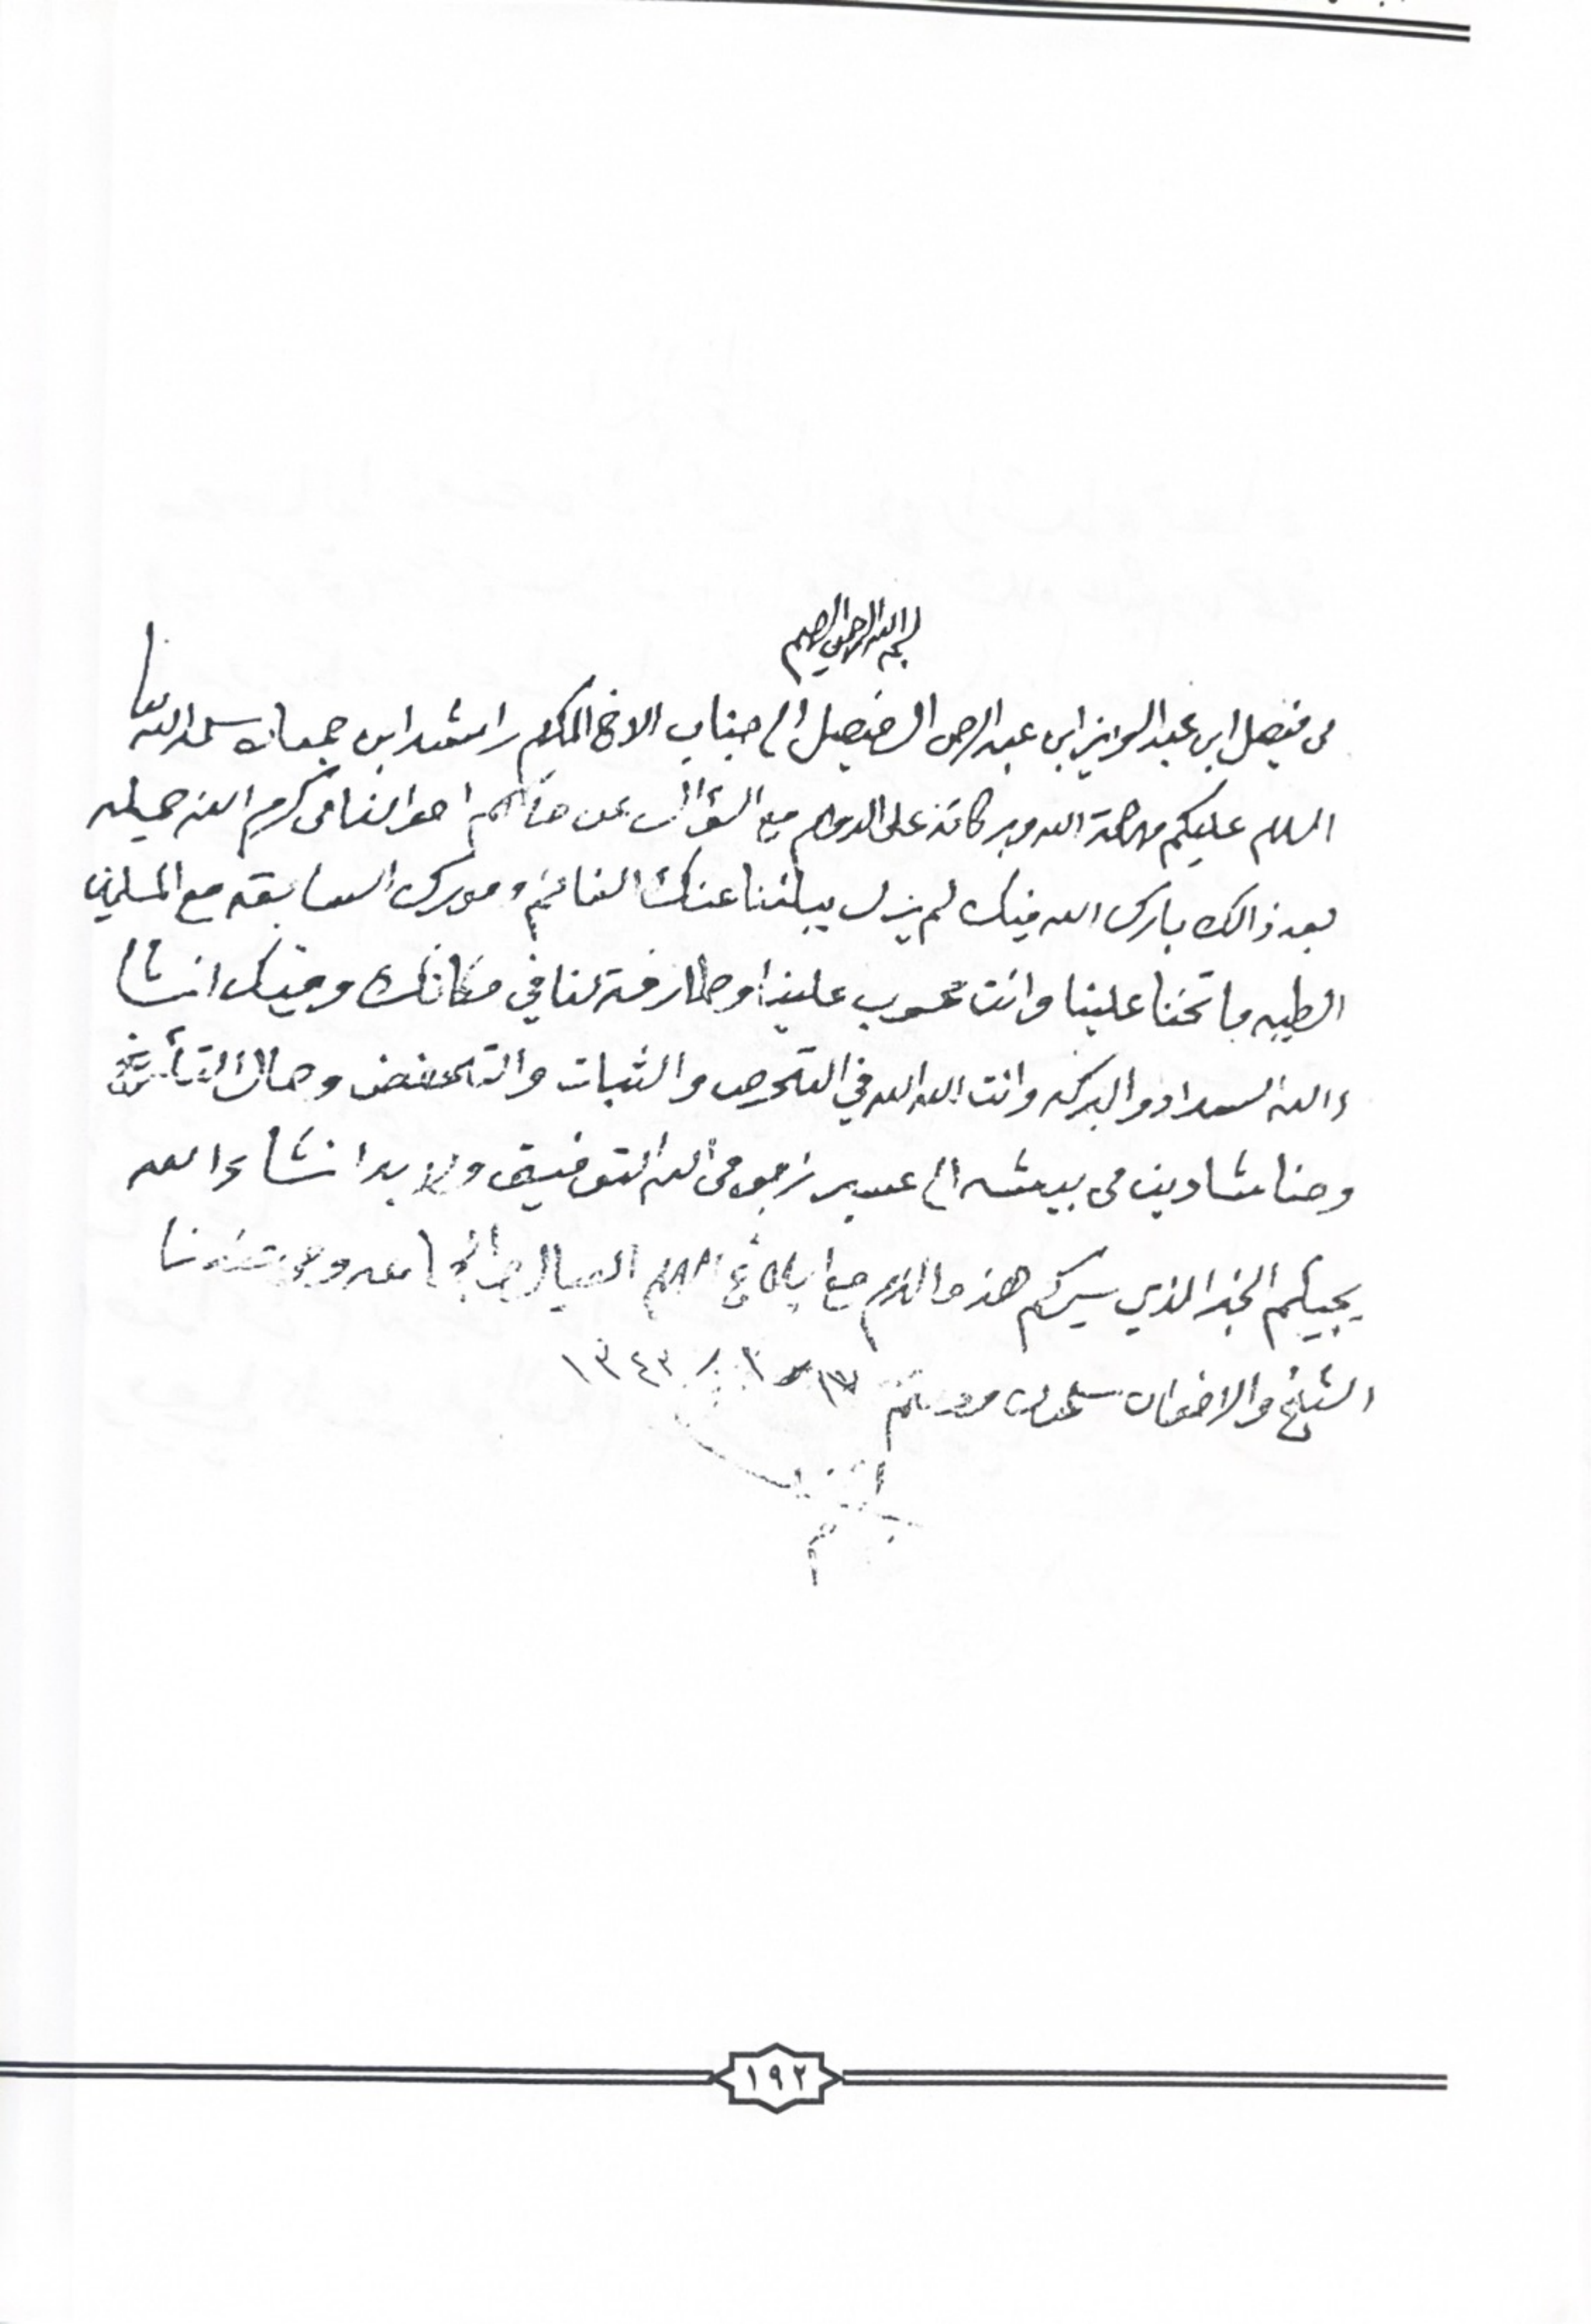 بسم الله الرحمن الرحيم
من فيصل ابن عبد العزيز ابن عبد الرحمن ال فيصل الى جناب الاخ المكرم راشد ابن جمعان سلمه الله تعا
السلام عليكم ورحمة الله وبركاته على الدوام مع السؤال عن حالكم احوالنا من كرم الله جميله
بعد ذالك بارك الله فيك لم يزل يبلغنا عنك النفائم ومورك السابقه مع المسلمين
الطيبه ما تخفا علينا وانت محسوب علينا وطارفة لنا في مكانك وفيك انشا
ء الله السداد والبركه وانت الله الله في التحرص والثبات والتحفض وحال التأريخ
وحنا شادين من بيشه الى عسير نرجو من الله التوفيق ولا بد انشاء الله
يجيكم الخبر الذي يسركم هذا والازم مع ابلاغ السلام العيال والجماعه ومن عندنا
الشيخ والاخوان يسلمون ودمتم ١٣٤٣
١٩٢